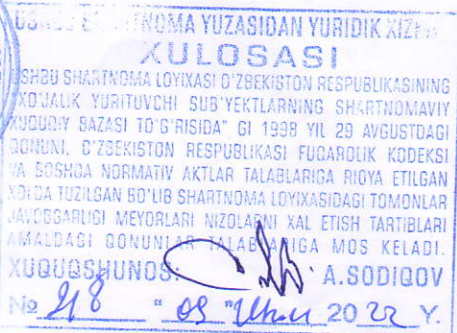 SHARTNOMA YUZASIDAN YURIDIK
XULOSASI
USHBU SHARTNOMA LOYIXASI O'ZBEKISTON RESPUBLIKASINING
"XO'JALIK YURITUVCHI SUB'YEKTLARNING SHARTNOMAVIY
XUQUQIY BAZASI TO'G'RISIDA" GI 1998 YIL 29 AVGUSTDAGI
QONUNI, O'ZBEKISTON RESPUBLIKASI FUQAROLIK KODEKSI
VA BOSHQA NORMATIV AKTLAR TALABLARIGA RIOYA ETILGAN
XOLDA TUZILGAN BO'LIB SHARTNOMA LOYIXASIDAGI TOMONLAR
JAVOBGARLIGI MEYORLARI NIZOLARNI XAL ETISH TARTIBLARI
AMALDAGI QONUNLAR TALABLARIGA MOS KELADI.
XUQUQSHUNOS: A.SODIQOV
№ "09" 2022 Y.